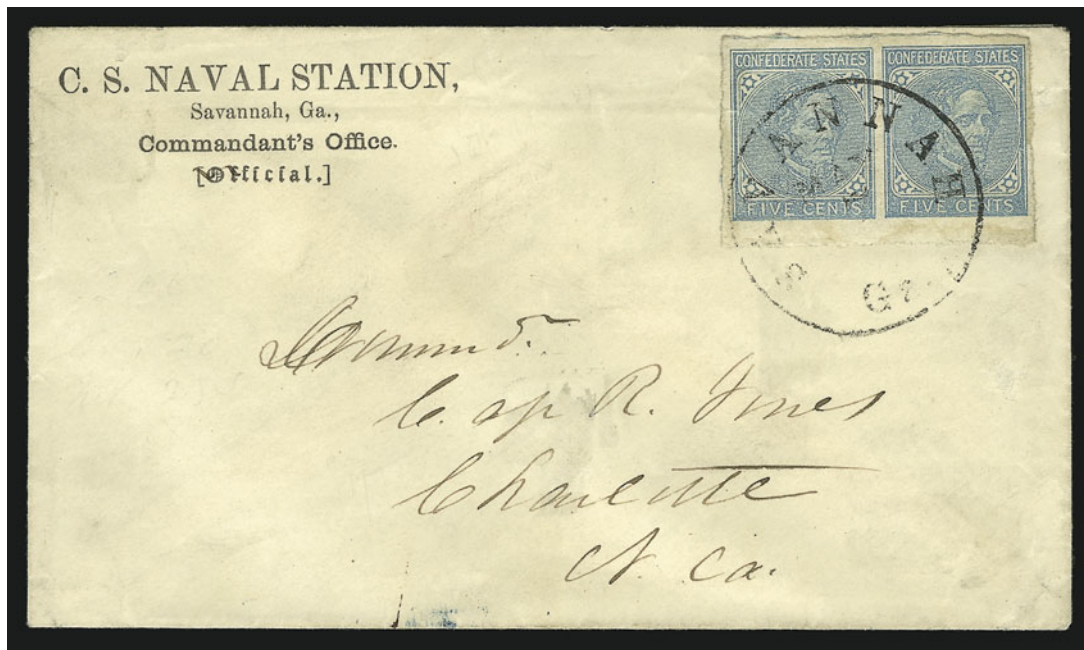 C. S. NAVAL STATION,
Savannah, Ga.,
Commandant's Office.
[Official.]
CONFEDERATE STATES
FIVE CENTS
CONFEDERATE STATES
FIVE CENTS
SAVANNAH Ga.
Command.
Cap R. Jones
Charlotte
N. Ca.